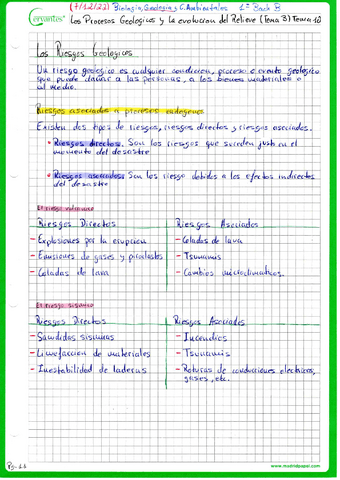 Cervantes
(7/12/22) Biología, Geología y C. Ambientales 1º Bach B
Los Procesos Geologicos y la evolucion del Relieve (Tema 3) Tema 10
Los Riesgos Geologicos
Un riesgo geologico es cualquier condicion, proceso o evento geologico
que puede dañar a las personas, a los bienes materiales o
al medio.
Riesgos asociados a procesos endogenos
Existen dos tipos de riesgos, riesgos directos y riesgos asociados.
• Riesgos directos. Son los riesgos que suceden justo en el
momento del desastre
• Riesgos asociados: Son los riesgo debidos a los efectos indirectos
del desastre
El riesgo volcanico
Riesgos Directos Riesgos Asociados
- Explosiones por la erupcion - Coladas de lava
- Emisiones de gases y piroclastos - Tsunamis
- Coladas de lava - Cambios microclimaticos.
El riesgo sismico
Riesgos Directos Riesgos Asociados
- Sacudidas sismicas - Incendios
- Licuefaccion de materiales - Tsunamis
- Inestabilidad de laderas - Roturas de conducciones electricas,
gases, etc.
www.madridpapel.com